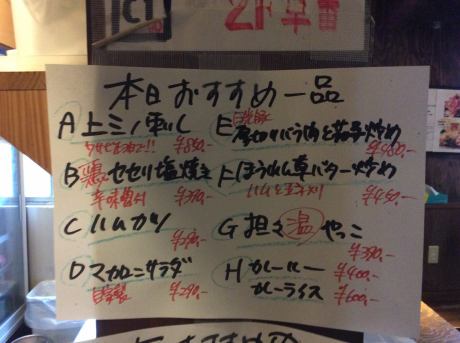 本日おすすめ一品
A 上ミノ刺し
ワサビしょうゆで!! ¥850.-
B 鶏セセリ塩焼き
辛味噌付 ¥390.-
C ハムカツ
¥390.-
D マカロニサラダ
自家製 ¥290.-
E 厚切りバラ肉と茄子炒め
¥480.-
F ほうれん草バター炒め
ハムと玉子入り ¥450.-
G 担々温やっこ
¥390.-
H カレールー ¥400.-
カレーライス ¥600.-